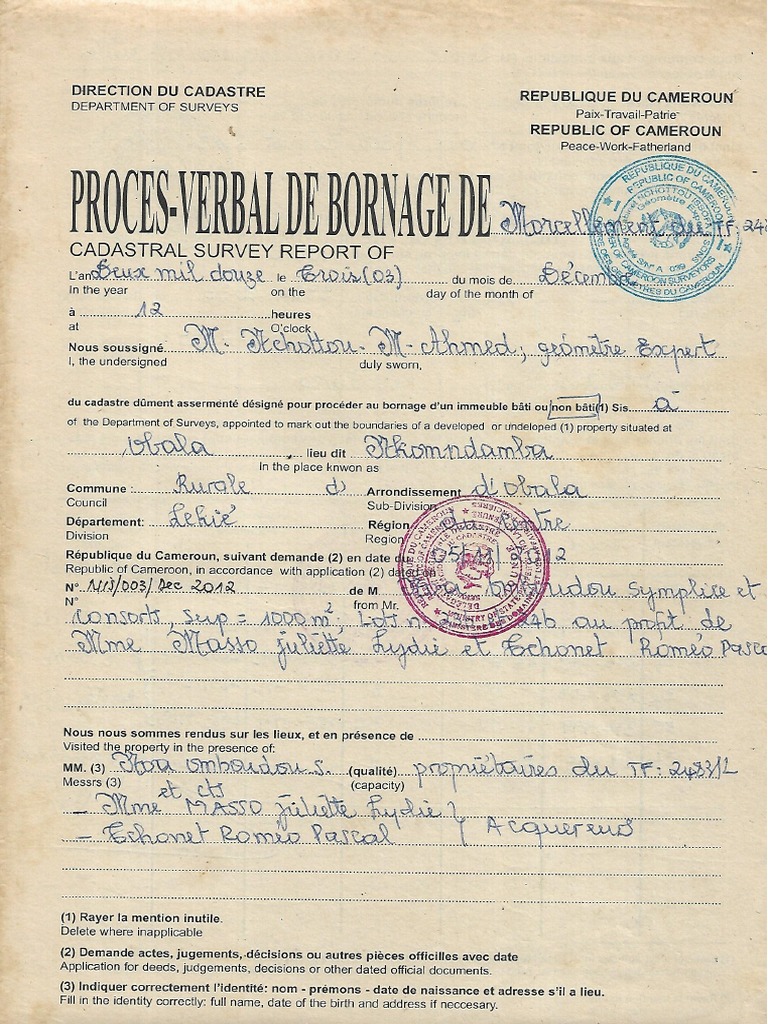 DIRECTION DU CADASTRE
DEPARTMENT OF SURVEYS
REPUBLIQUE DU CAMEROUN
Paix-Travail-Patrie
REPUBLIC OF CAMEROON
Peace-Work-Fatherland
PROCES-VERBAL DE BORNAGE DE Morcellement du TF: 248
CADASTRAL SURVEY REPORT OF
L'an Deux mil douze le Trois (03) du mois de Décembre
In the year on the day of the month of
à 12 heures
at O'clock
Nous soussigné M. Nchottou M. Ahmed, géomètre Expert
I, the undersigned duly sworn,
du cadastre dûment assermenté désigné pour procéder au bornage d'un immeuble bâti ou non bâti(1) Sis à
of the Department of Surveys, appointed to mark out the boundaries of a developed or undeloped (1) property situated at
Obala lieu dit Nkomndamba
In the place knwon as
Commune : Rurale d' Arrondissement d'Obala
Council Sub-Division
Département: Lekié Région Centre
Division Region
République du Cameroun, suivant demande (2) en date du
Republic of Cameroon, in accordance with application (2) dated on
N° 1413/003/Dec 2012 de M Symplice et
N° from Mr.
consorts, Sup = 1000 m², Lot n° au profit de
Mme Masso juliette Lydie et Tchonet Roméo Pasca
Nous nous sommes rendus sur les lieux, et en présence de
Visited the property in the presence of:
MM. (3) Omboudou S. (qualité) propriétaires du TF: 2483/L
Messrs (3) et cts (capacity)
- Mme MASSO Juliette Lydie
- Tchonet Roméo Pascal } Acquereurs
(1) Rayer la mention inutile.
Delete where inapplicable
(2) Demande actes, jugements, décisions ou autres pièces officilles avec date
Application for deeds, judgements, decisions or other dated official documents.
(3) Indiquer correctement l'identité: nom - prémons - date de naissance et adresse s'il a lieu.
Fill in the identity correctly: full name, date of the birth and address if neccesary.